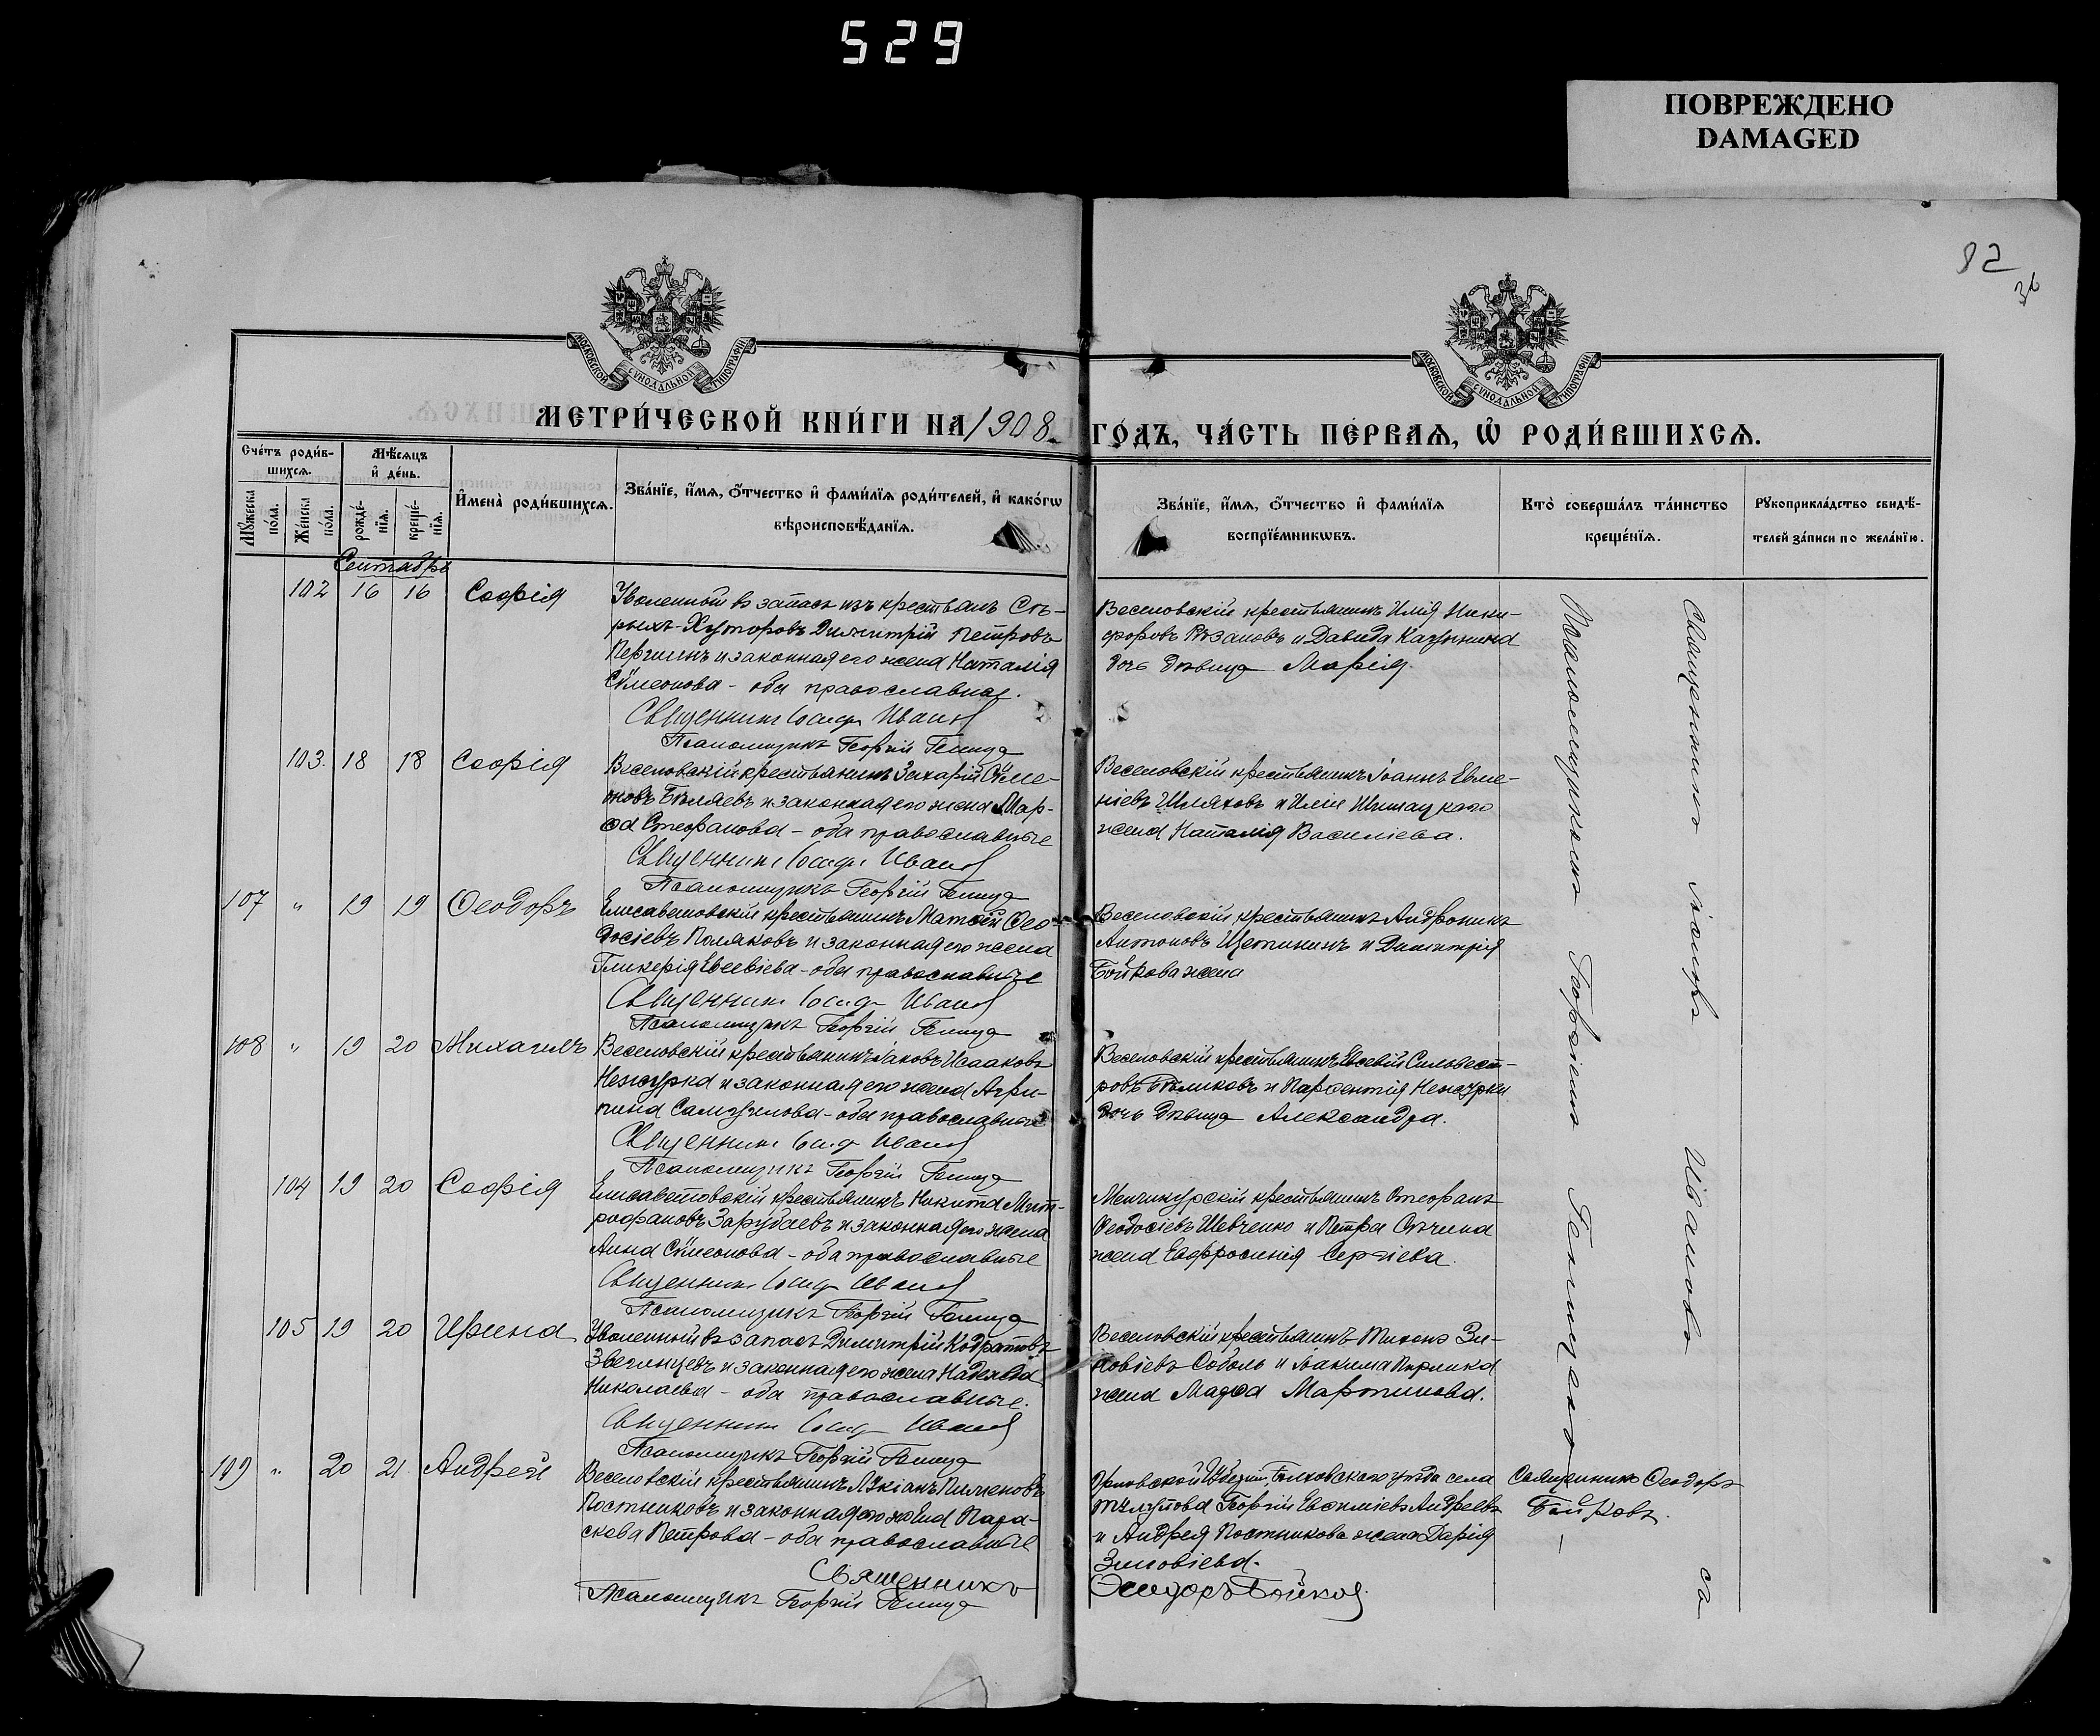 529
ПОВРЕЖДЕНО
DAMAGED
82
36
МОСКОВСКОЙ СУНОДАЛЬНОЙ ТИПОГРАФІИ
МОСКОВСКОЙ СУНОДАЛЬНОЙ ТИПОГРАФІИ
МЕТРИ́ЧЕСКОЙ КНИ́ГИ НА 1908 ГО́ДЪ, ЧА́СТЬ ПЕ́РВАѦ, Ѡ҆ РОДИ́ВШИХСѦ.
Сче́тъ роди́в-
шихсѧ.
Мѣ́сѧцъ
и҆ де́нь.
Мꙋ́жеска
по́ла.
Же́нска
по́ла.
рожде́-
нїѧ.
креще́-
нїѧ.
И҆мена̀ роди́вшихсѧ.
Зва́нїе, и҆́мѧ, ѻ҆́тчество и҆ фами́лїѧ роди́телей, и҆ како́гѡ
вѣроисповѣ́данїѧ.
Зва́нїе, и҆́мѧ, ѻ҆́тчество и҆ фами́лїѧ
воспрїе́мникѡвъ.
Кто̀ соверша́лъ та́инство
креще́нїѧ.
Рꙋкоприкла́дство свидѣ́-
телей за́писи по жела́нїю.
Сентябрь
102 16 16 Софія
Уволенный въ запасъ изъ крестьянъ Ста-
рыхъ-Хуторовъ Димитрій Петровъ
и законная его жена Наталія
Сѵмеонова - оба православные.
Священникъ Іосифъ Ивановъ
Псаломщикъ Георгій Геница
Веселовскій крестьянинъ Илія Ники-
форовъ Рязановъ и Давида
дочь дѣвица Марія.
103. 18 18 Софія
Веселовскій крестьянинъ Захарій Сѵме-
оновъ Бѣляевъ и законная его жена Мар-
ѳа Стефанова - оба православные
Священникъ Іосифъ Ивановъ
Псаломщикъ Георгій Геница
Веселовскій крестьянинъ Іоаннъ Евме-
ніевъ Шляховъ и Иліи
жена Наталія Василіева.
107 " 19 19 Ѳеодоръ
Елисаветовскій крестьянинъ Матѳей Ѳео-
досіевъ Поляковъ и законная его жена
Гликерія Евсевіева - оба православные
Священникъ Іосифъ Ивановъ
Псаломщикъ Георгій Геница
Веселовскій крестьянинъ Андроникъ
Антоновъ Щетининъ и Димитрія
Бойкова жена
108 " 19 20 Михаилъ
Веселовскій крестьянинъ Іаковъ Исааковъ
Ненжурка и законная его жена Агри-
пина Самуилова - оба православные
Священникъ Іосифъ Ивановъ
Псаломщикъ Георгій Геница
Веселовскій крестьянинъ Евсевій Сильвест-
ровъ Бѣликовъ и Парѳентія Ненжурки
дочь дѣвица Александра.
104 19 20 Софія
Елисаветовскій крестьянинъ Никита Мит-
рофановъ Зарубаевъ и законная его жена
Анна Сѵмеонова - оба православные
Священникъ Іосифъ Ивановъ
Псаломщикъ Георгій Геница
Менчикурскій крестьянинъ Стефанъ
Ѳеодосіевъ Шевченко и Петра
жена Евфросинія Сергіева.
105 19 20 Ирина
Уволенный въ запасъ Димитрій Кодратовъ
Звегинцевъ и законная его жена Надежда
Николаева - оба православные.
Священникъ Іосифъ Ивановъ
Псаломщикъ Георгій Геница
Веселовскій крестьянинъ Тихонъ Зи-
новіевъ Соболь и Іоакима
жена Марѳа Мартинова.
109 " 20 21 Андрей
Веселовскій крестьянинъ Лукіанъ Пименовъ
Постниковъ и законная его жена Пара-
скева Петрова - оба православные
Священникъ
Псаломщикъ Георгій Геница
Орловской губерніи, Болховскаго уѣзда села
Георгій Евѳиміевъ Андреевъ
и Андрея Постникова жена Дарія
Зиновіева.
Ѳеодоръ Бойковъ
Священникъ Ѳеодоръ
Бойковъ.
Священникъ Іосифъ Ивановъ съ
Псаломщикомъ Георгіемъ Геницею